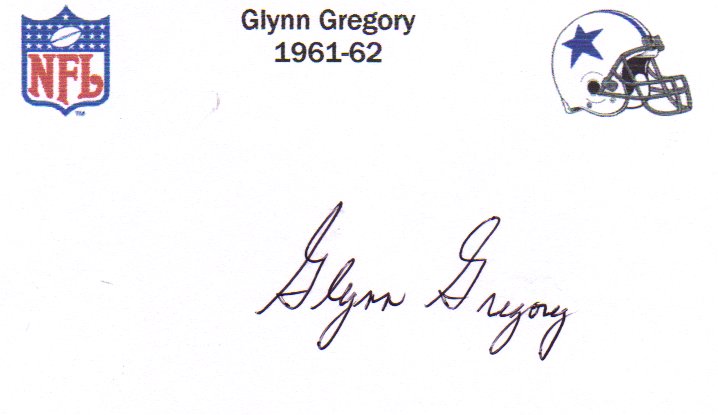 Glynn Gregory
1961-62
NFL
TM
Glynn Gregory